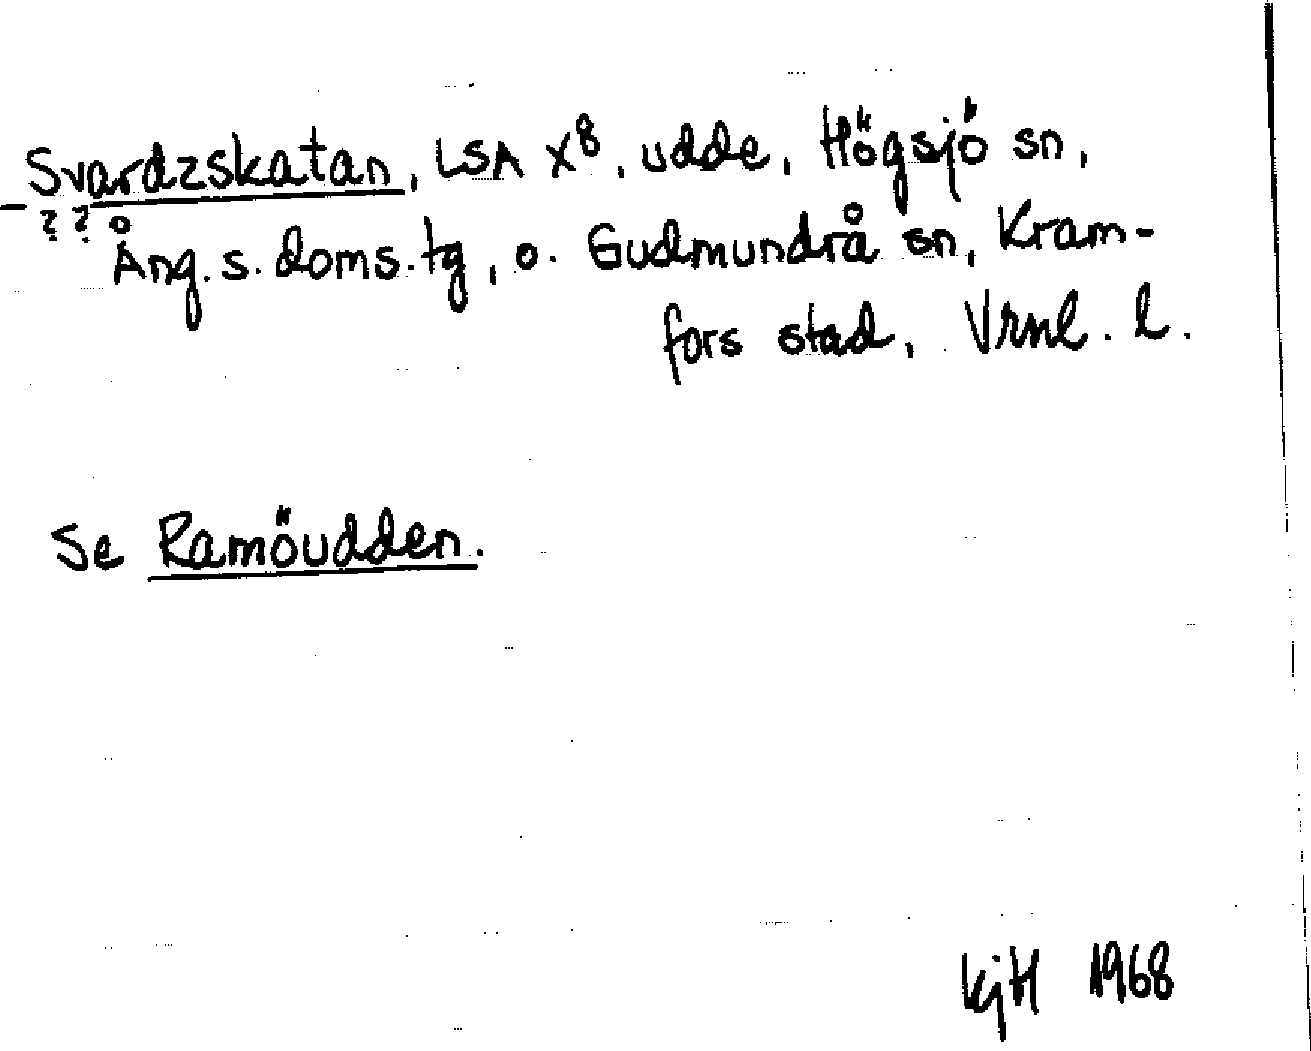 Svardzskatan, LSA X8, udde, Högsjö sn,
? ?
Ång. s. doms. tg, o. Gudmundrå sn, Kram-
fors stad, Vrnl. l.
Se Ramöudden.
KjH 1968